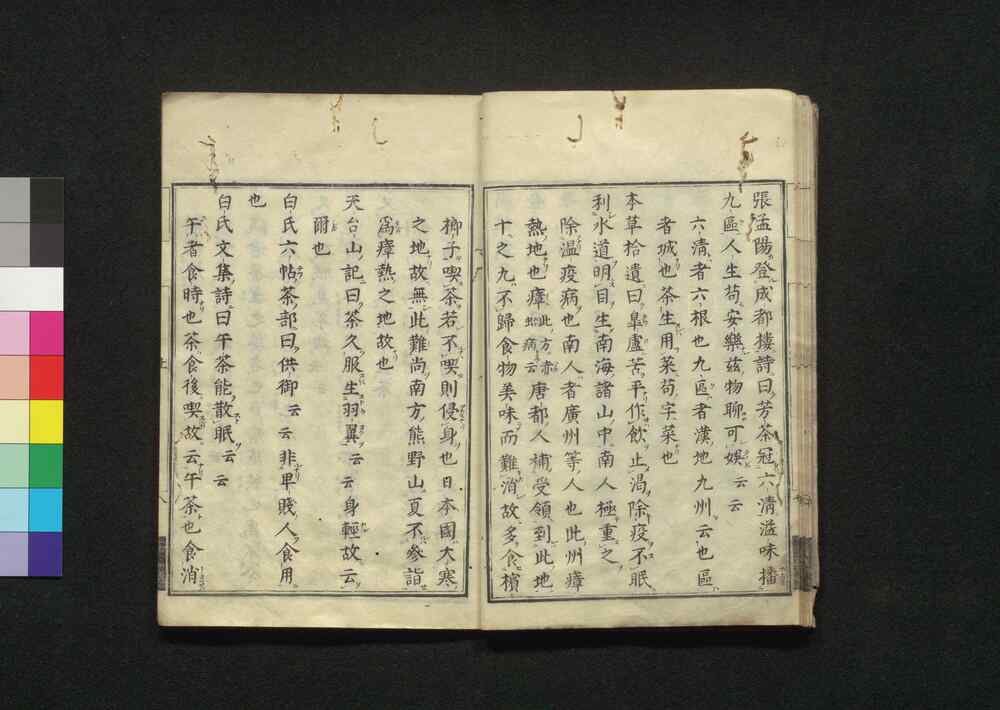 張孟陽登成都樓詩曰芳茶冠六清溢味播
九區人生苟安樂茲物聊可娯云云
六清者六根也九區者漢地九州云也區
者城也茶生用菜苟字菜也
本草拾遺曰皐盧苦平作飲止渇除疫不眠
利水道明目生南海諸山中南人極重之
除温疫病也南人者廣州等人也此州瘴
熱地也瘴此方赤虫病云唐都人補受領到此地
十之九不歸食物美味而難消故多食檳
榔子喫茶若不喫則侵身也日本國大寒
之地故無此難尚南方熊野山夏不參詣
爲瘴熱之地故也
天台山記曰茶久服生羽翼云云身輕故云
爾也
白氏六帖茶部曰供御云云非卑賤人食用
也
白氏文集詩曰午茶能散眠云云
午者食時也茶食後喫故云午茶也食消